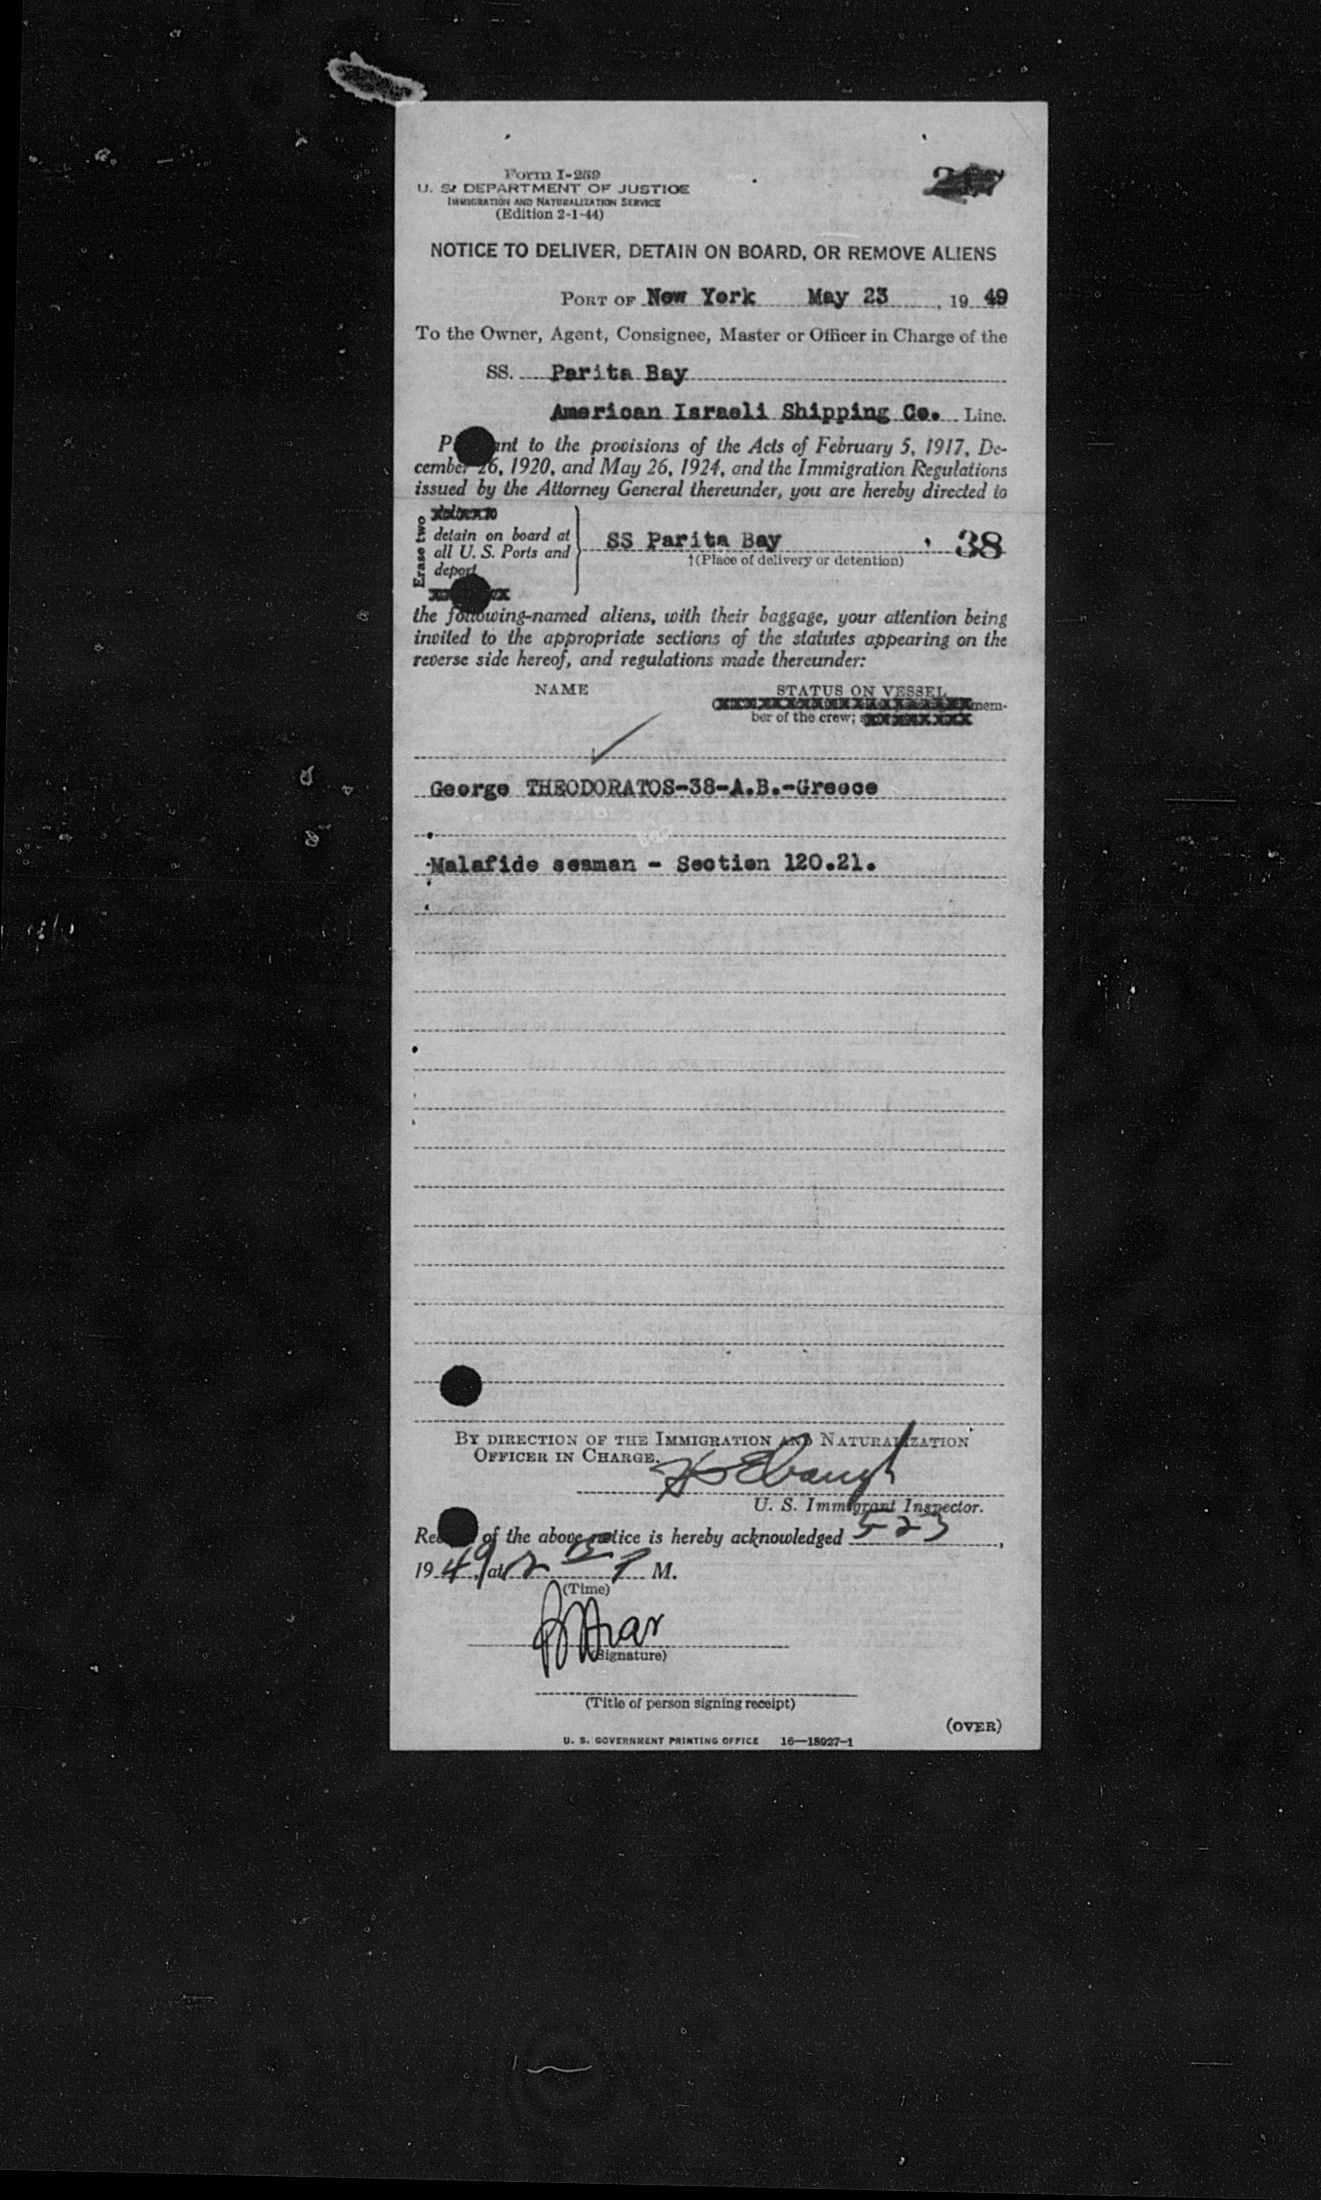 Form I-259
U. S. DEPARTMENT OF JUSTICE
IMMIGRATION AND NATURALIZATION SERVICE
(Edition 2-1-44)
NOTICE TO DELIVER, DETAIN ON BOARD, OR REMOVE ALIENS
PORT OF New York May 23, 19 49
To the Owner, Agent, Consignee, Master or Officer in Charge of the
SS. Parita Bay
American Israeli Shipping Co. Line.
to the provisions of the Acts of February 5, 1917, De-
cember 26, 1920, and May 26, 1924, and the Immigration Regulations
issued by the Attorney General thereunder, you are hereby directed to
Erase two
detain on board at
all U. S. Ports and
deport
SS Parita Bay 38
†(Place of delivery or detention)
the following-named aliens, with their baggage, your attention being
invited to the appropriate sections of the statutes appearing on the
reverse side hereof, and regulations made thereunder:
NAME STATUS ON VESSEL
mem-
ber of the crew;
George THEODORATOS-38-A.B.-Greece
Malafide seaman - Section 120.21.
BY DIRECTION OF THE IMMIGRATION AND NATURALIZATION
OFFICER IN CHARGE.
U. S. Immigrant Inspector.
of the above notice is hereby acknowledged 5-23,
19 49, at M.
(Time)
(Signature)
(Title of person signing receipt)
(OVER)
U. S. GOVERNMENT PRINTING OFFICE 16—18027-1